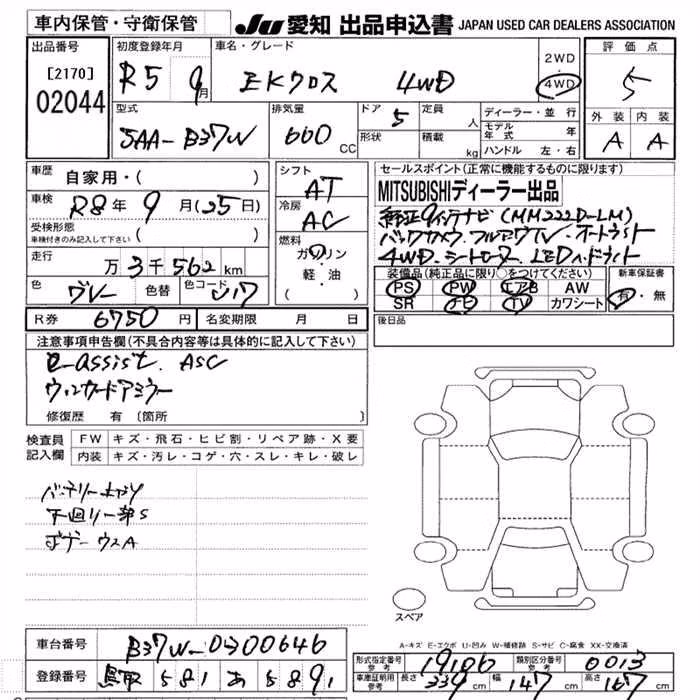 車内保管・守衛保管
JU 愛知 出品申込書 JAPAN USED CAR DEALERS ASSOCIATION
出品番号
[2170]
02044
初度登録年月
R5 9月
車名・グレード
EKクロス 4WD
2WD
4WD
評価点
5
外装 内装
A A
型式
5AA-B37W
排気量
660 CC
ドア 5
形状
定員 人
積載 kg
ディーラー・並行
モデル年式 年
ハンドル 左・右
車歴 自家用・( )
車検 R8年9月(25日)
受検形態
車検付きのみ記入して下さい ( )
走行 万3千562km
色 グレー 色替 色コード U17
シフト AT
冷房 AC
燃料
ガソリン
軽・油
( )
セールスポイント(正常に機能するものに限ります)
MITSUBISHIディーラー出品
純正9インチナビ(MM222D-LM)
バックカメラ.フルセグTV.オートライト
4WD.シートヒーター.LEDヘッドライト
装備品(純正品に限り○をつけてください)
PS PW エアB AW
SR ナビ TV カワシート
新車保証書
有・無
R券 6750円 名変期限 月 日
後日品
注意事項申告欄(不具合内容等は具体的に記入して下さい)
e-assist. ASC
ウィンカードアミラー
修復歴 有 〔箇所 〕
検査員記入欄
FW キズ・飛石・ヒビ割・リペア跡・X要
内装 キズ・汚レ・コゲ・穴・スレ・キレ・破レ
下回リ一部S
ボデーウスA
スペア
A-キズ E-エクボ U-凹み W-補修跡 S-サビ C-腐食 XX-交換済
車台番号 B37W-0300646
登録番号 鳥取 581 あ 589
形式指定番号 参考 19106 類別区分番号 参考 0013
車庫証明用 参考 長さ 339cm 幅 147cm 高さ 167cm